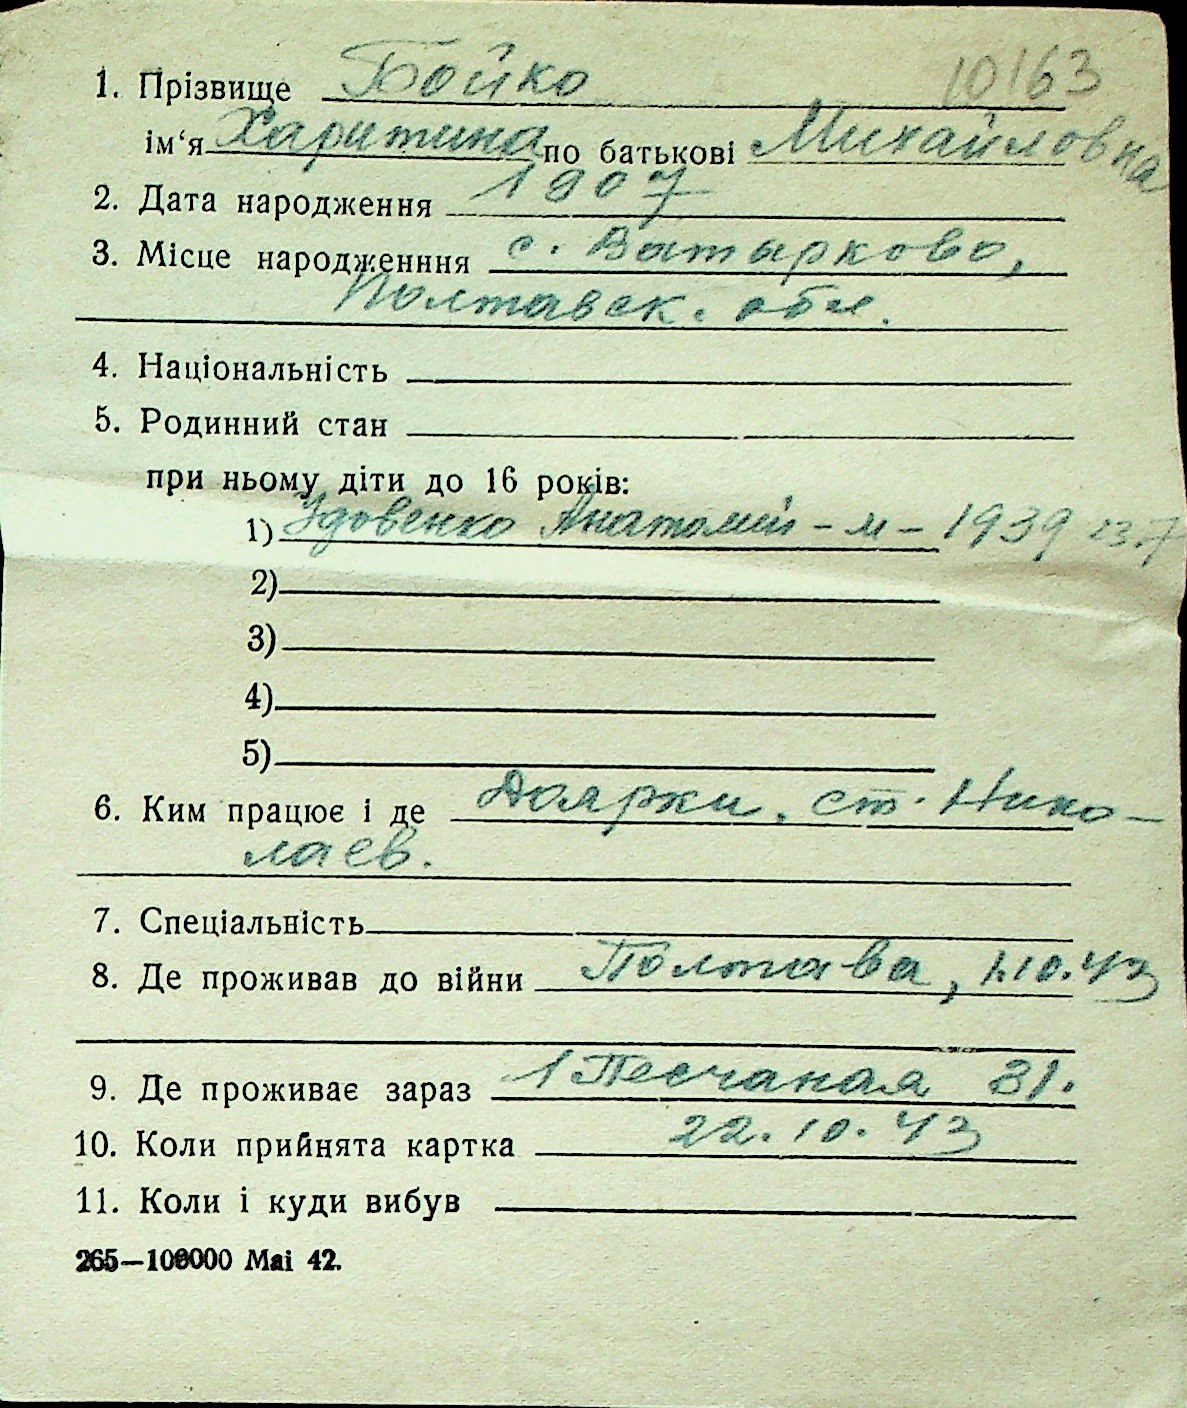 10163
1. Прізвище Бойко
ім‘я Харитина по батькові Михайловна
2. Дата народження 1907
3. Місце народженння с. Ватырково,
Полтавск. обл.
4. Національність
5. Родинний стан
при ньому діти до 16 років:
1) Удовенко Анатолий - м - 1939
2)
3)
4)
5)
6. Ким працює і де Доярки, ст. Нико-
лаев.
7. Спеціальність
8. Де проживав до війни Полтава, 1.10.43
9. Де проживає зараз 1 Песчаная 31.
10. Коли прийнята картка 22.10.43
11. Коли і куди вибув
265—100000 Mai 42.